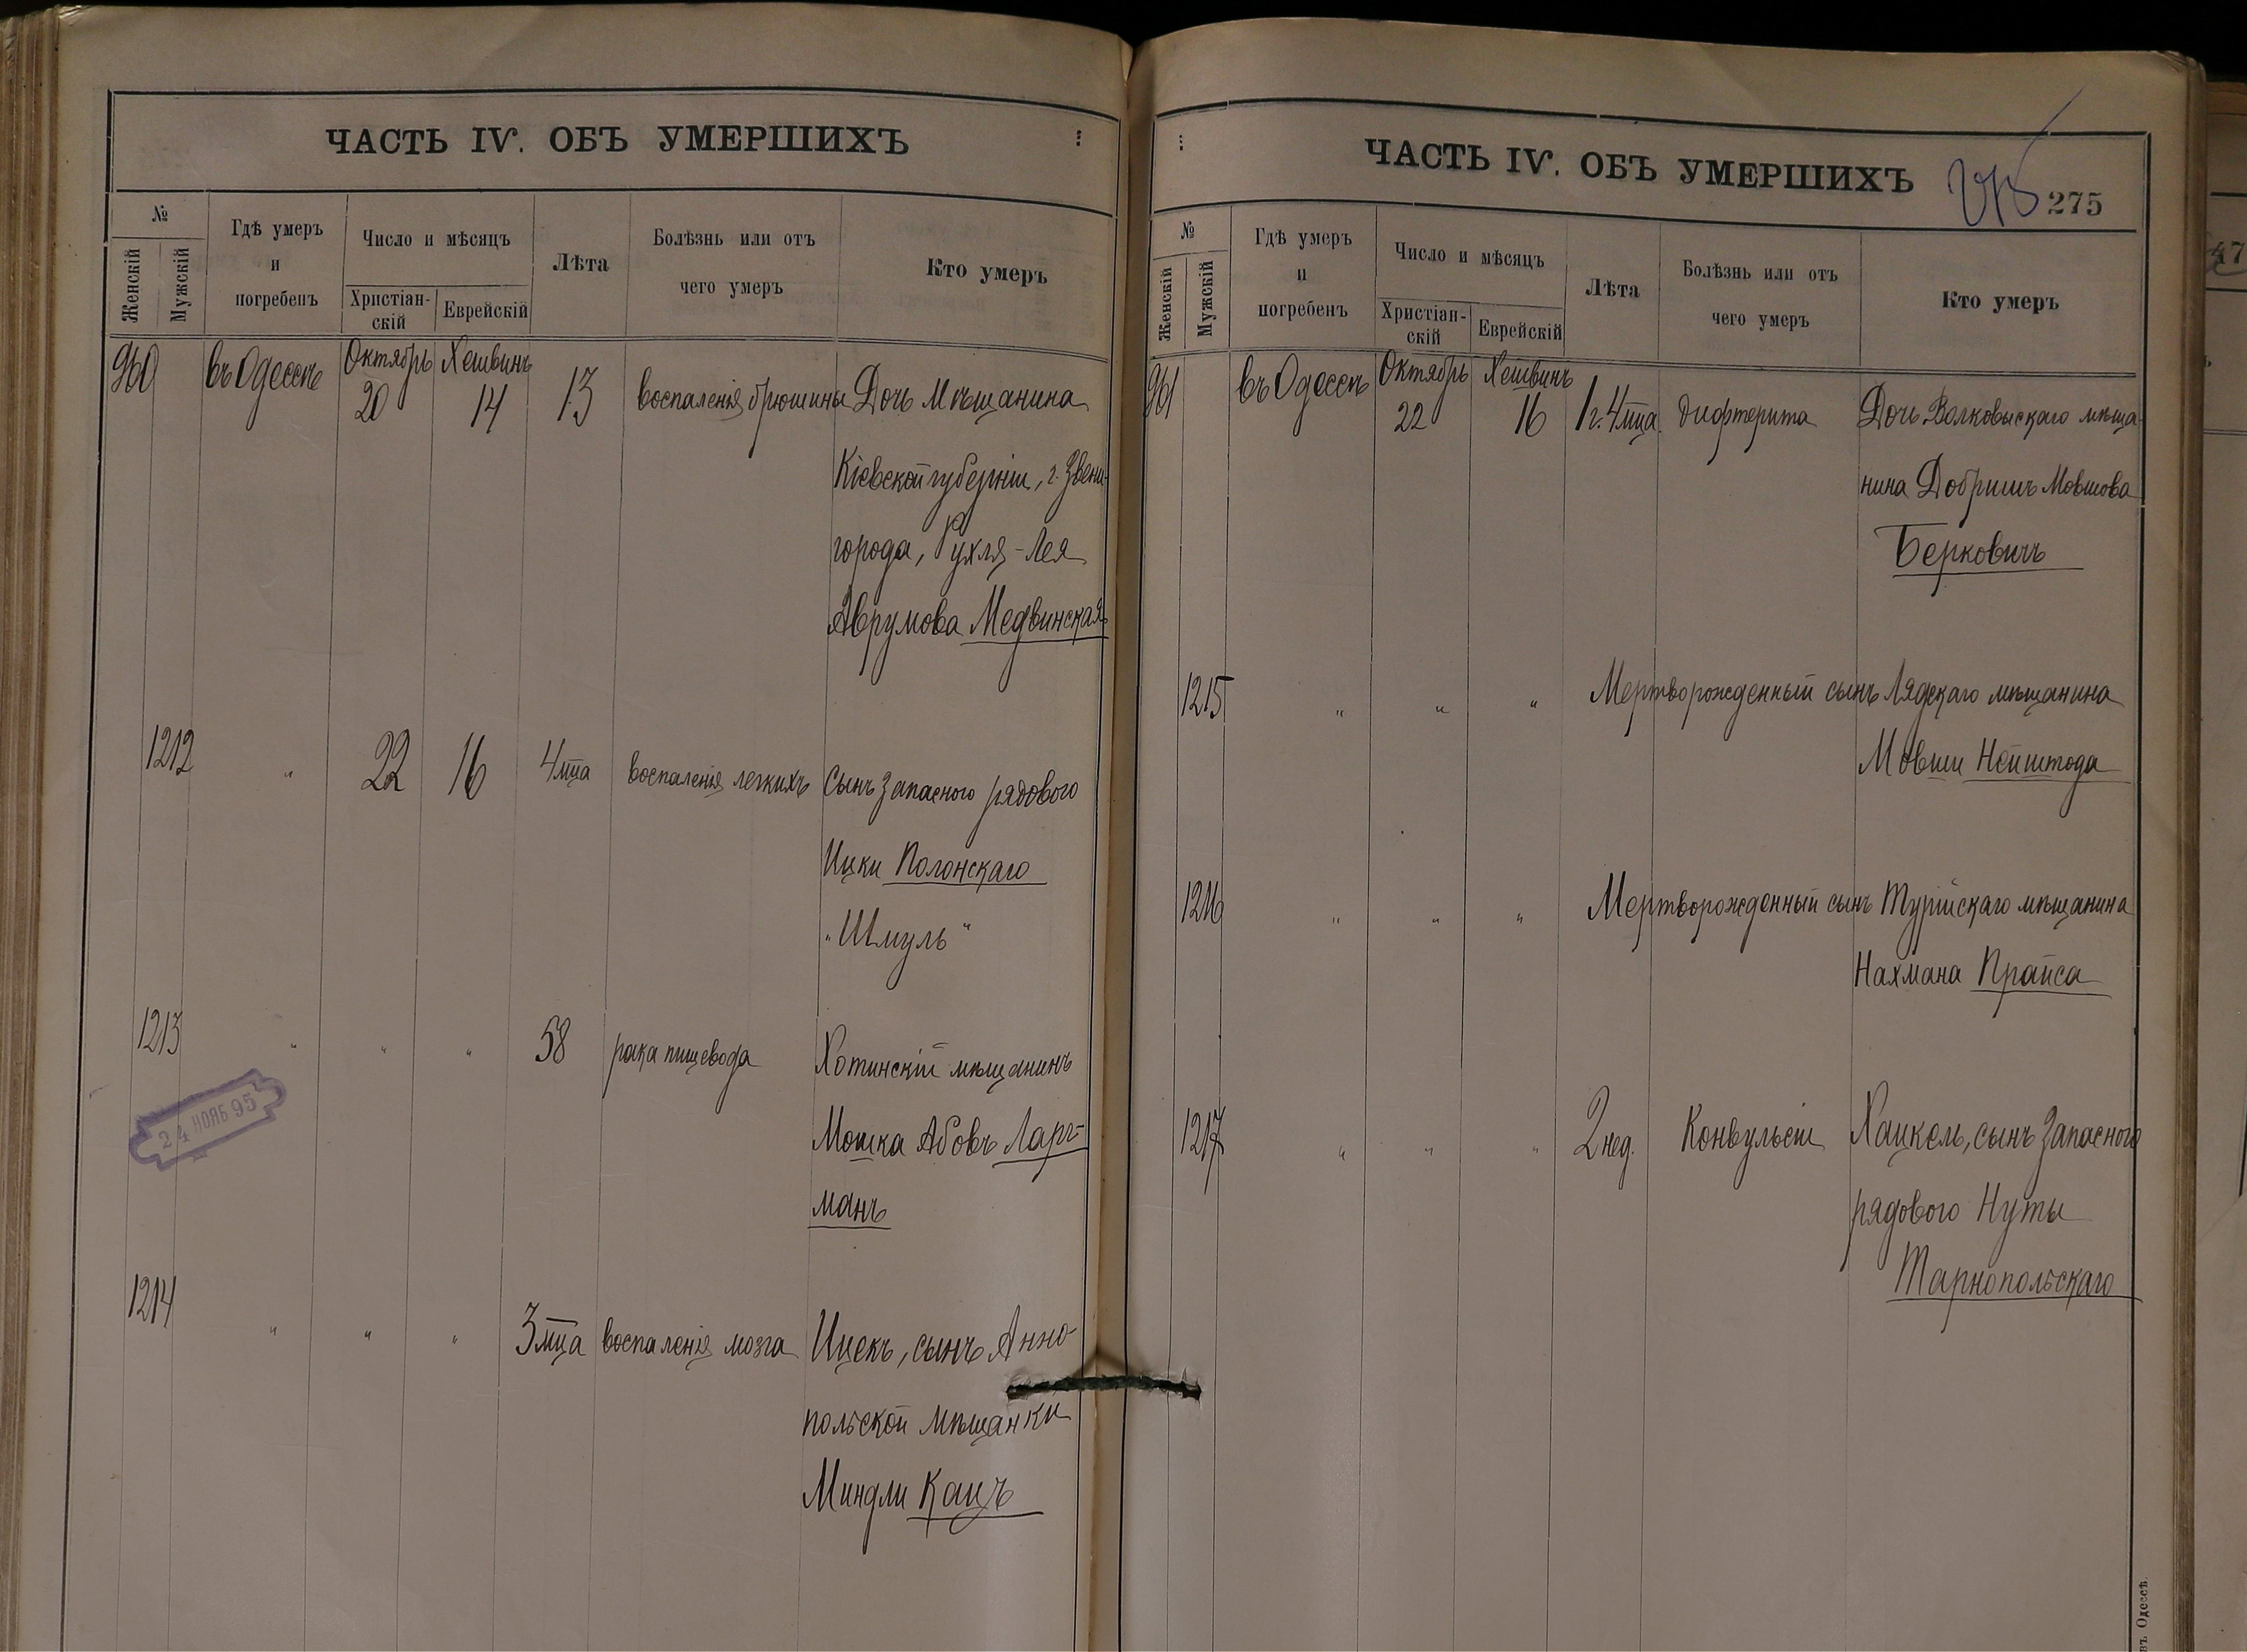 ЧАСТЬ IV. ОБЪ УМЕРШИХЪ
№
Женскій
Мужскій
Гдѣ умеръ
и
погребенъ
Число и мѣсяцъ
Христіан-
скій
Еврейскій
Лѣта
Болѣзнь или отъ
чего умеръ
Кто умеръ
960 въ Одессѣ Октябрь 20 Хешвинъ 14 13 воспаленія брюшины Дочь Мѣщанина
Кіевской губерніи, г. Звени-
города, Рухля-Лея
Аврумова Медвинская
1212 " 22 16 4 мца воспаленія легкихъ Сынъ Запасного рядового
Ицки Полонскаго
"Шмуль"
1213 " " " 58 рака пищевода Хотинскій мѣщанинъ
Мошка Абовъ Ларг-
манъ
24 НОЯБ 95
1214 " " " 3 мца воспаленія мозга Ицекъ, сынъ Анно-
польской мѣщанки
Миндли Кацъ
ЧАСТЬ IV. ОБЪ УМЕРШИХЪ
275
№
Женскій
Мужскій
Гдѣ умеръ
и
погребенъ
Число и мѣсяцъ
Христіан-
скій
Еврейскій
Лѣта
Болѣзнь или отъ
чего умеръ
Кто умеръ
961 въ Одессѣ Октябрь 22 Хешвинъ 16 1 г. 4 мца. дифтерита Дочь Волковыскаго мѣща-
нина Добришъ Мовшова
Берковичъ
1215 " " " Мертворожденный сынъ Лядскаго мѣщанина
Мовши Нейштода
1216 " " " Мертворожденный сынъ Турійскаго мѣщанина
Нахмана Прайса
1217 " " " 2 нед. Конвульсіи Хацкель, сынъ Запасного
рядового Нуты
Тарнопольскаго
47
въ Одессѣ.